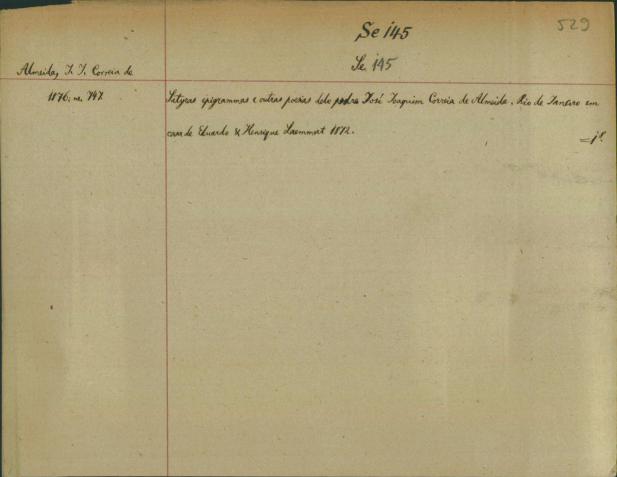 Se i45
529
Se i45
Almeida, J. J. Correia de
1876, no. 747.
Satyras epigrammas e outras poesias pelo padre José Joaquim Correia de Almeida. Rio de Janeiro em
casa de Eduardo & Henrique Laemmert 1872.